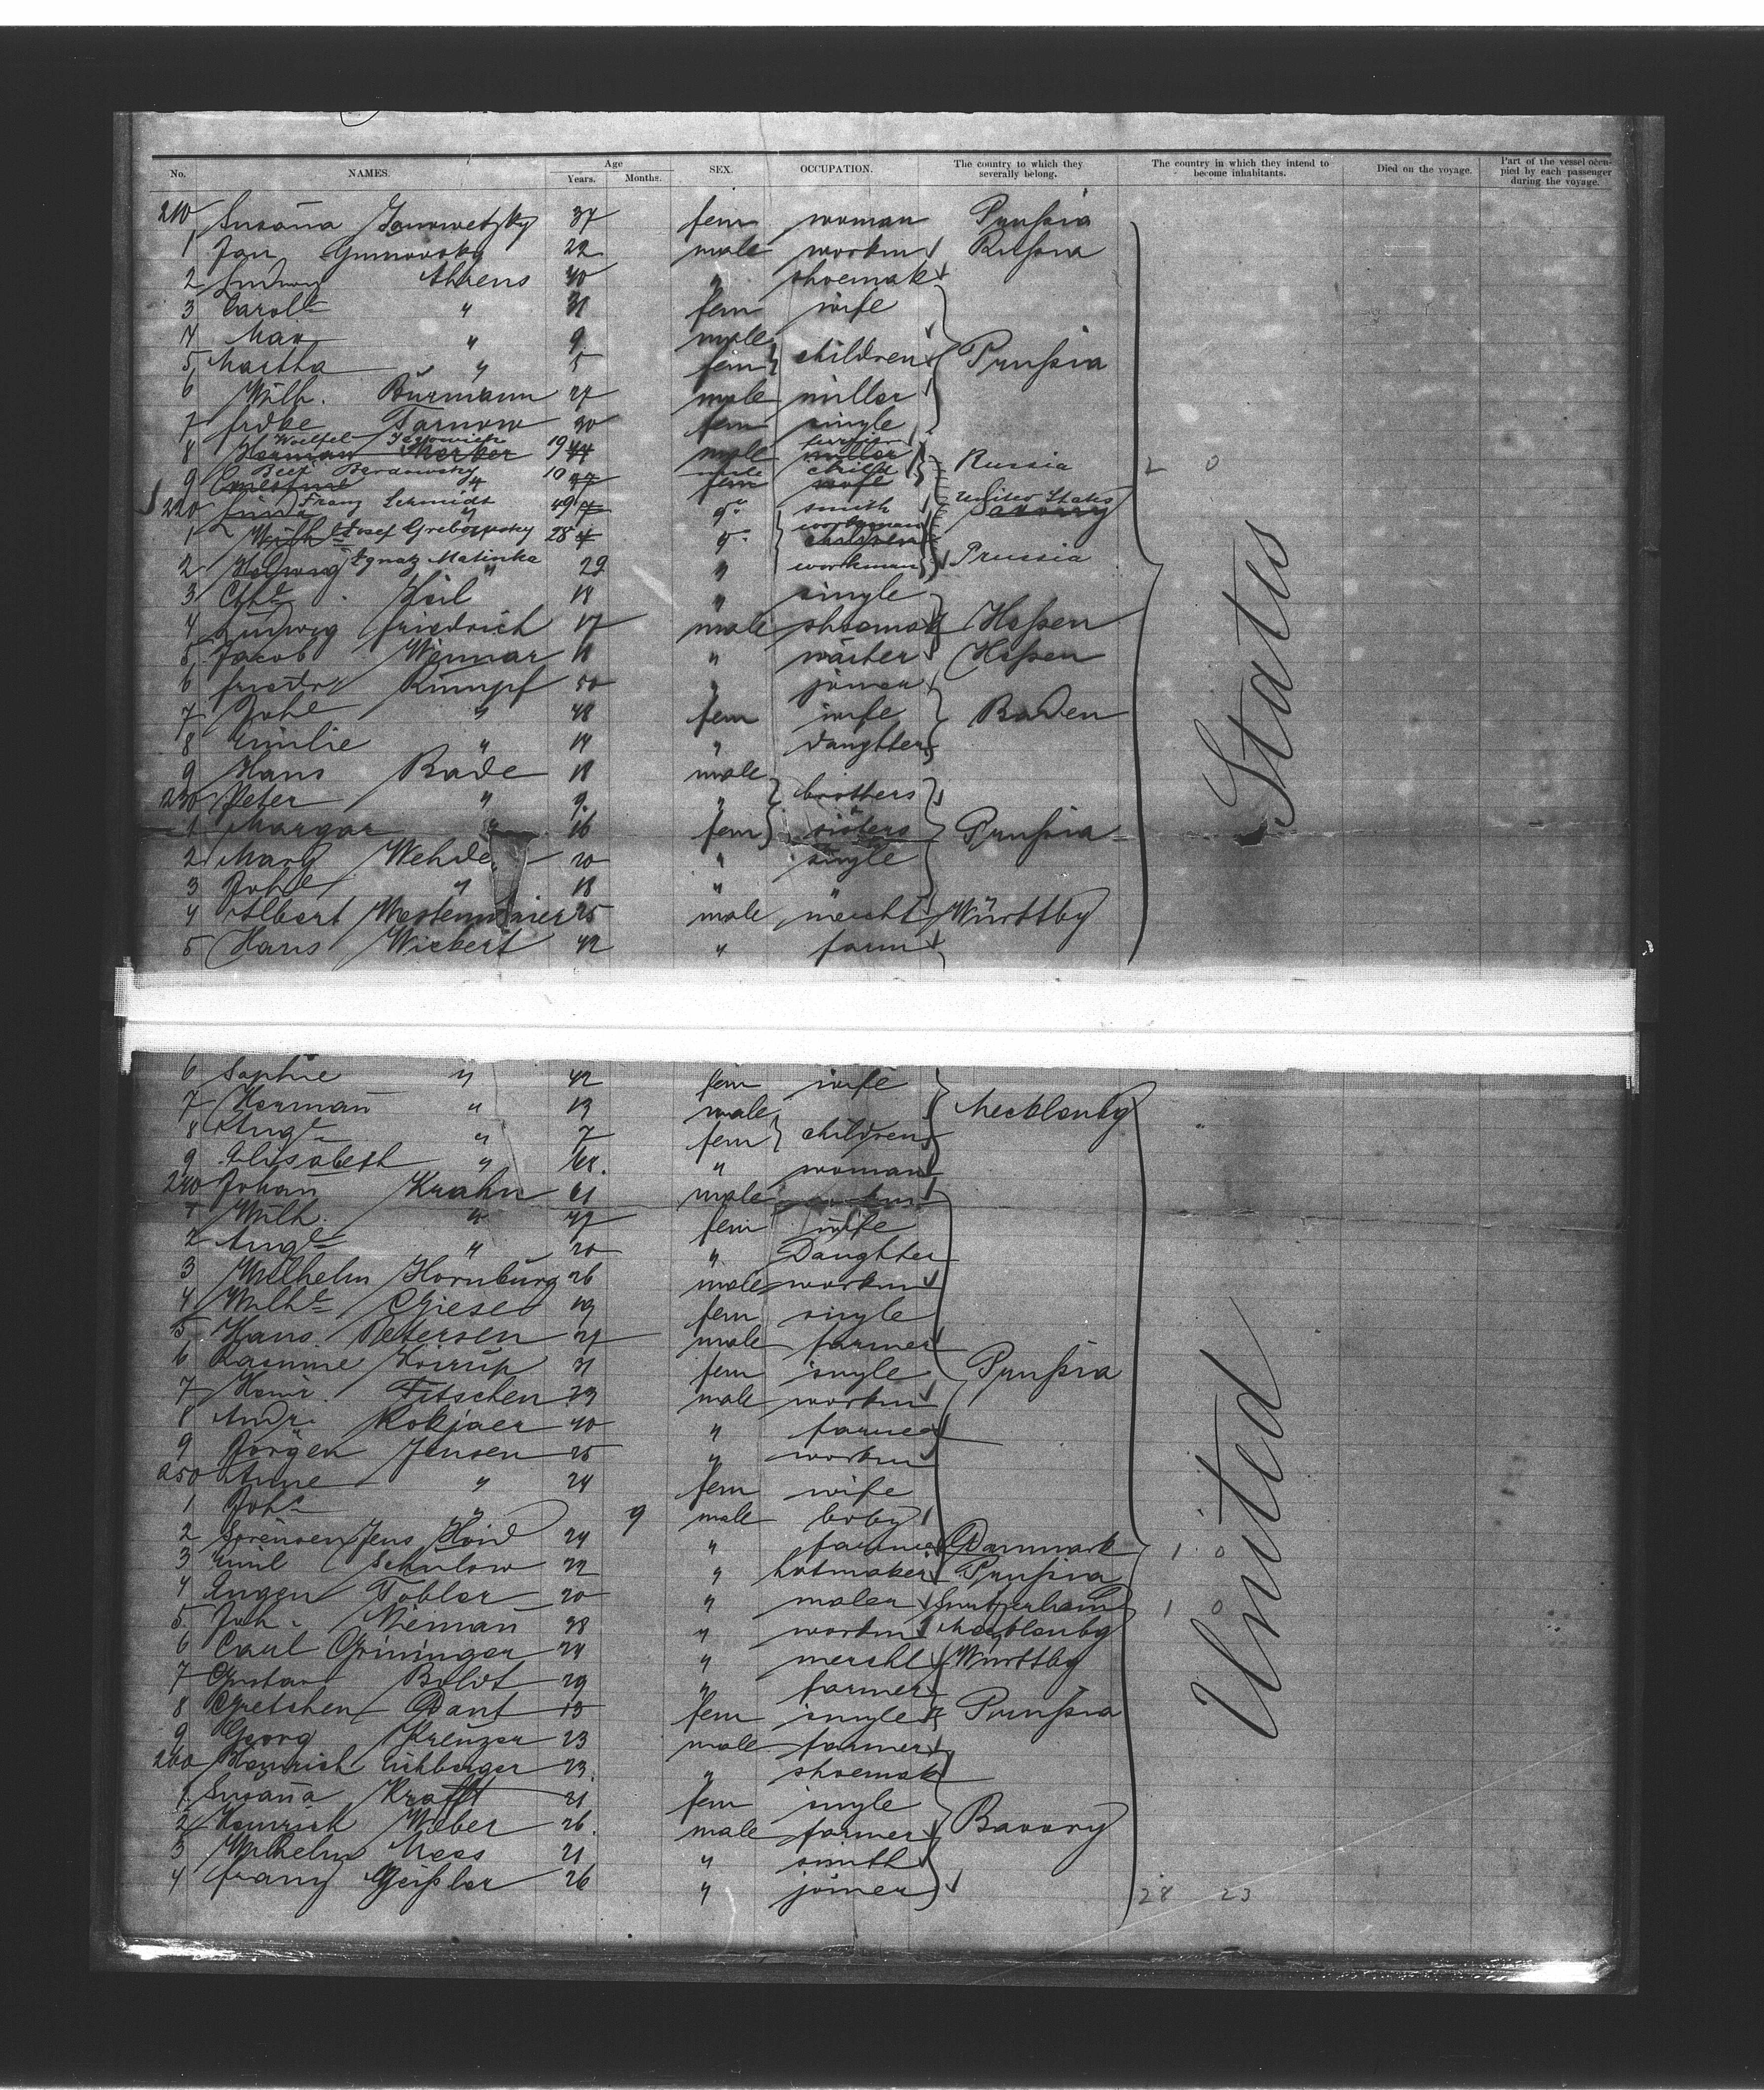 No. NAMES. Age Years. Months. SEX. OCCUPATION. The country to which they severally belong. The country in which they intend to become inhabitants. Died on the voyage. Part of the vessel occupied by each passenger during the voyage.
210 Susaña 37 fem woman Prußia
1 Jan 22 male workm Rußia
2 Ludwig Ahrens 40 " shoemak
3 Carole " 31 fem wife
4 Max " 9 male
5 Martha " 5 fem children Prußia
6 Wilh. Burmann 27 male miller
7 Frdke Tarnow 30 fem single
8 Woelfel 19 male Russia 2 0
9 Beer Bardowsky 10 male child
220 Franz Schmidt 49 " smith United States
1 Josef 28 " workman
2 Ignatz Matinka 29 " workman Prussia
3 Chte Keil 18 " single
4 Ludwig Friedrich 17 male shoemak Heßen
5 Jacob Weimar 18 " waiter Heßen
6 Friedr Rumpf 50 " joiner
7 Johe " 48 fem wife Baden
8 Emilie " 14 " daughter
9 Hans Rade 18 male
230 Peter " 9. " brothers
1 Margar " 16 fem sisters Prußia
2 Marg Wehde 20 " single
3 Johe " 18 " "
4 Albert Westenmaier 25 male mercht Württbg
5 Hans Wickert 42 " farm
States
6 Sophie " 42 fem wife
7 Hermañ " 13 male Mecklenbg
8 Auge " 7 fem children
9 Elisabeth " 68. " woman
240 Johañ Krahn 61 male
1 Wilh. " 47 fem wife
2 Auge " 20 " Daughter
3 Wilhelm Hornburg 26 male workm
4 Wilhe Giese 19 fem single
5 Hans Petersen 27 male farmer
6 Rasmine Koirup 31 fem single Prußia
7 Heinr. Fitschen 23 male workm
8 Andr. Rokjaer 40 " farmer
9 Jörgen Jensen 25 " workm
250 Anne " 24 fem wife
1 Johs " 9 male boby
2 Sörensen Jens Hoid 24 " farmer Danmark 1 0
3 Emil Schulow 22 " hotmaker Prußia
4 Eugen Tobler 20 " maler 1 0
5. Joh. Niemañ 38 " workm Mecklenbg
6 Carl Grininger 24 " mercht Württbg
7 Gustav Boldt 29 " farmer
8 Gretchen Dant 15 fem single Prußia
9 Georg Kreuzer 23 male farmer
260 Heinrich Eichberger 23. " shoemak
1 Susaña Krafft 21 fem single
2 Heinrich Weber 26. male farmer Bavory
3 Wilhelm Mess 21 " smith
4 Franz Geißler 26 " joiner
United
28 23